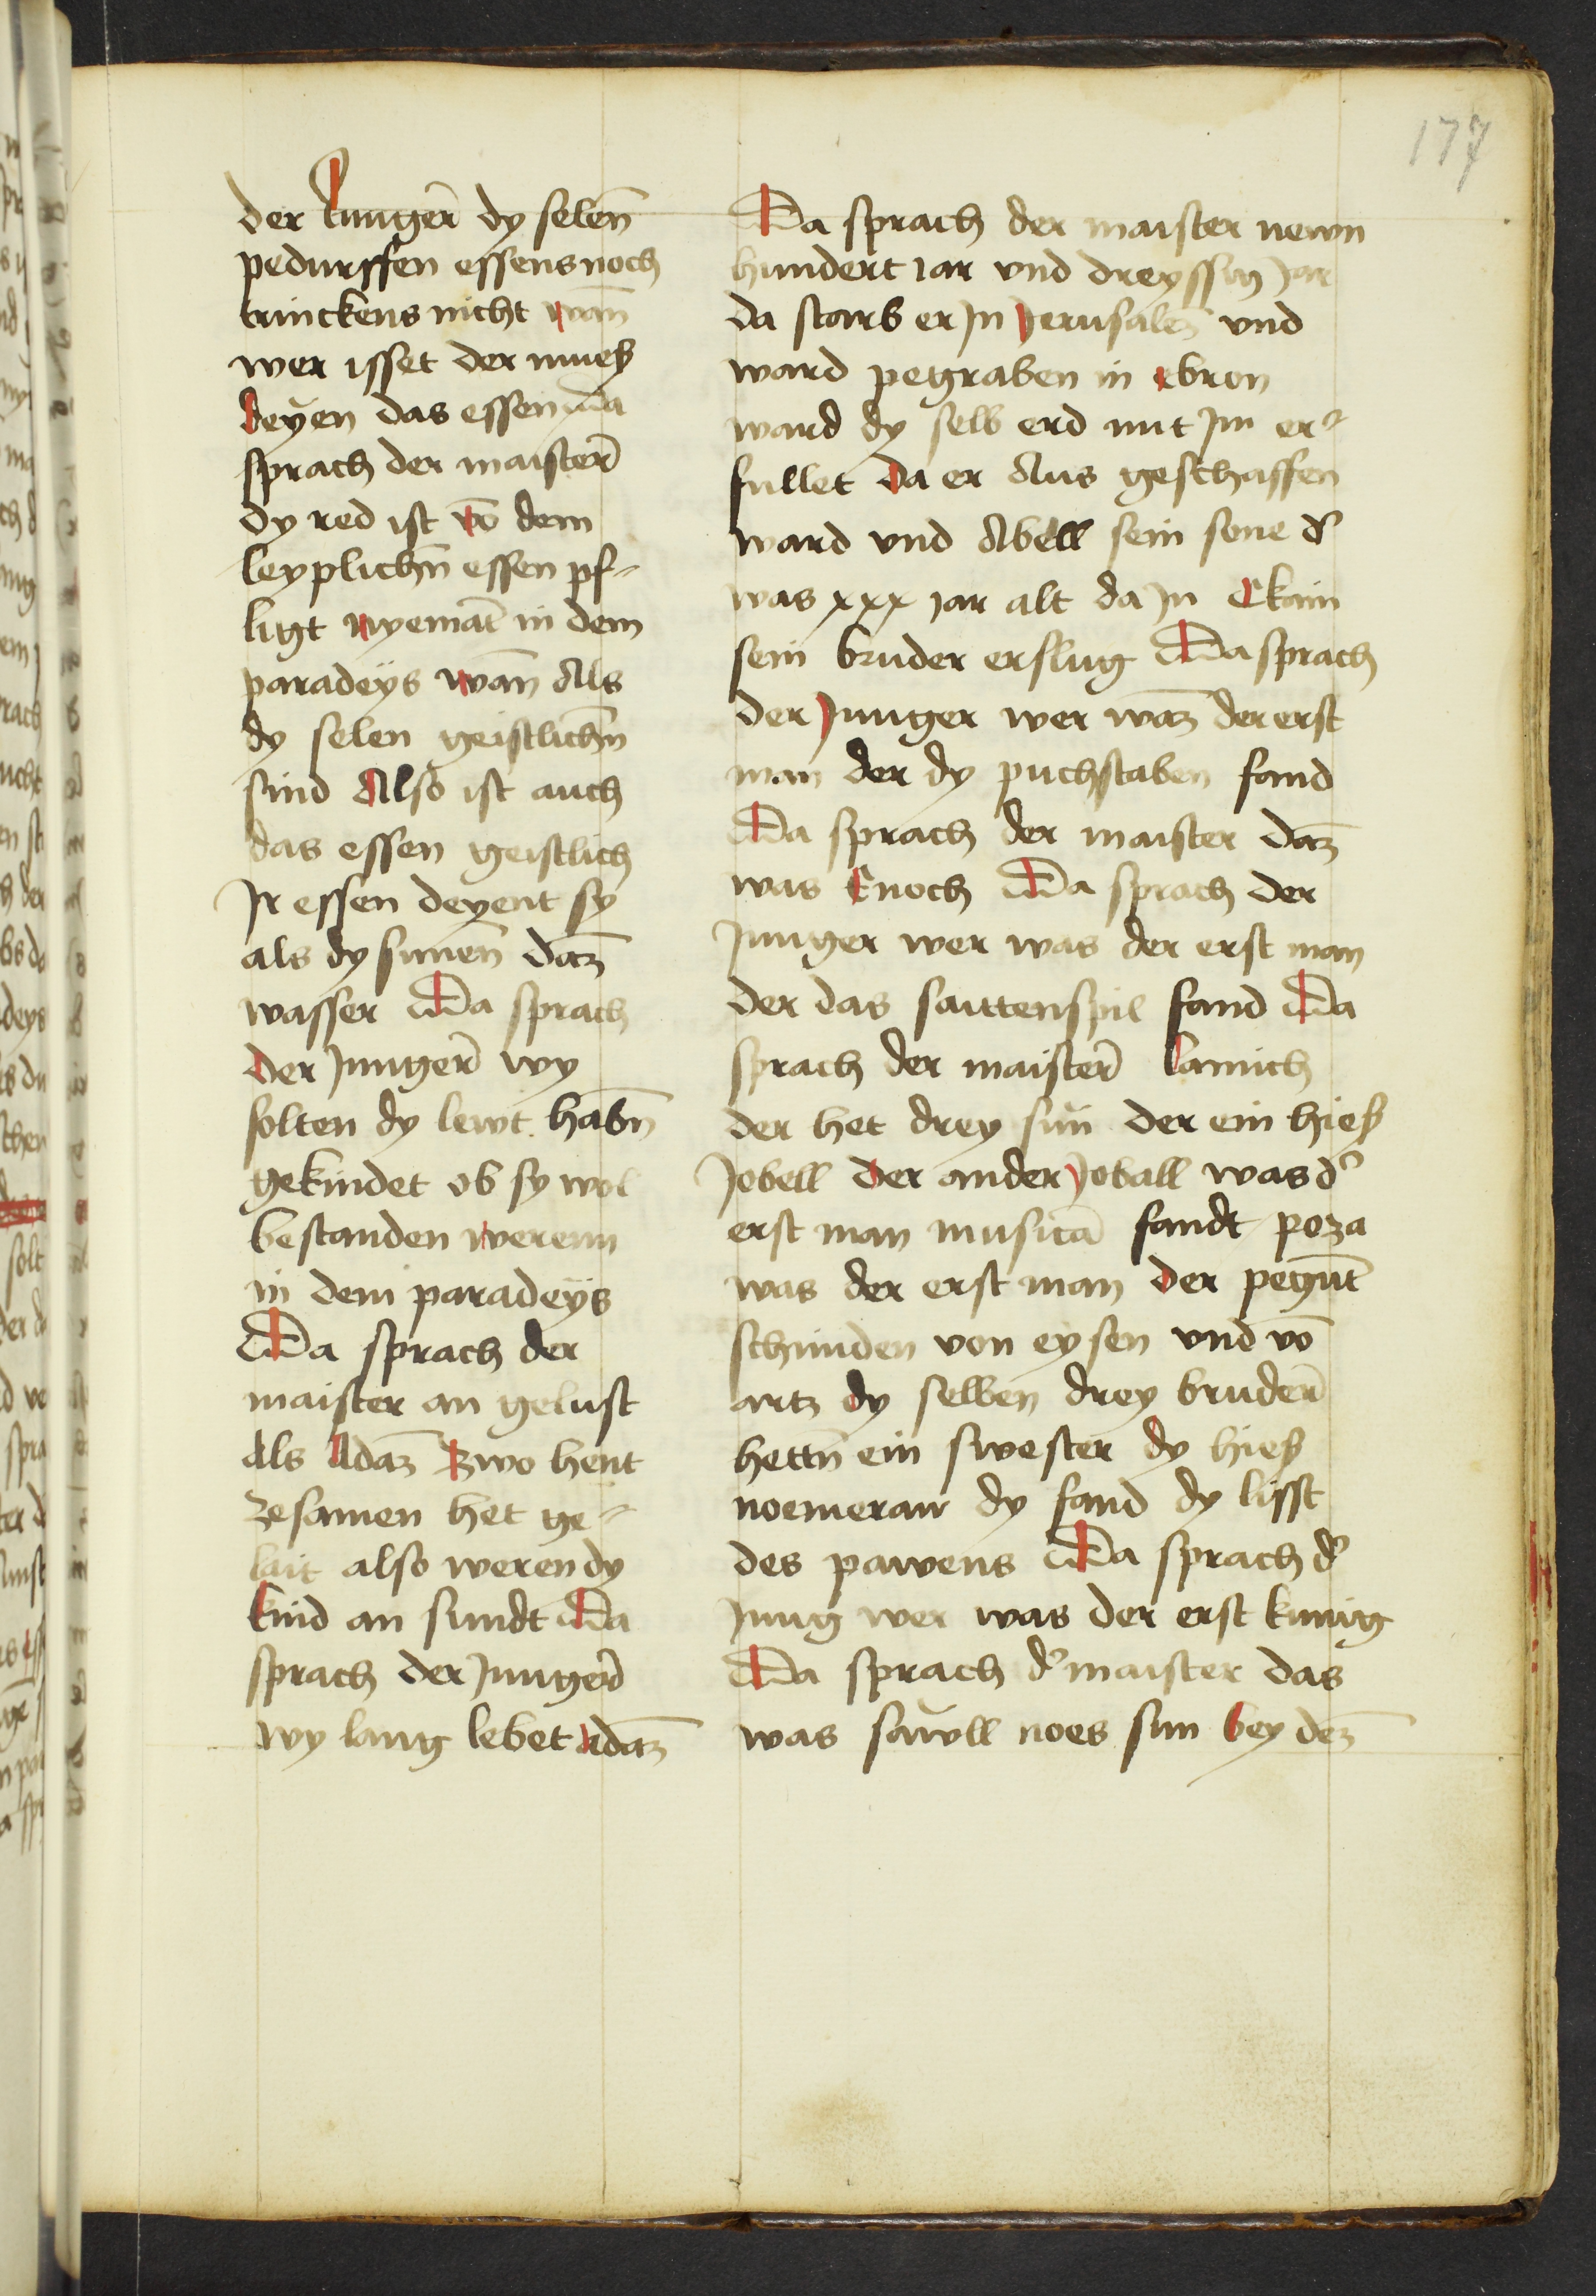 177
der Junger̄ dy selen̄
pedurffen essens noch
trinckens nicht wan̄
wer isset der mueß
deyen das essen Da
sprach der maister̄
dy red ist vō dem
leyplichn̄ essen pf-
ligt nyemāt in dem
paradeÿs wan̄ Als
dy selen geistlichn̄
sind Also ist auch
das essen geistlich
Jr essen deyent sy
als dy sunnen̄ daz
wasser Da sprach
der Junger̄ wy
solten dy lewt habn̄
gekindet ob sy wol
bestanden werenn
in dem paradeÿs
Da sprach der
maister an gelust
Als Adaz̄ zwo hent
zesamen het ge-
lait also weren dy
kind an sundt Da
sprach der Junger̄
wy lang lebet Adaz̄
Da sprach der maister newn
hundert iar vnd dreyssig Jar
da starb er Jn Jerusalē vnd
ward pegraben in ebron
ward dy selb erd mit Jm er-
fullet da er Aus geschaffen
ward vnd Abell sein sone d̓
was xxx jar alt da Jn Ckain
sein bruder erslug Da sprach
der Junger wer waz̄ der erst
man der dy puchstaben fand
Da sprach der maister daz̄
was Enoch Da sprach der
Junger wer was der erst man
der das saittenspil fand Da
sprach der maister̄ lamich
der het drey sün der ein hieß
Jobell der ander Joball was d̓
erst man musicā fandt poza
was der erst man der pegūt
schmiden von eysen vnd vō
artz dy selben drey bruder̄
hettn̄ ein swester dy hieß
noemeraw dy fand dy lisst
des pawens Da sprach d̓
Jung wer was der erst kunig
Da sprach d̓ maister das
was sawll noes sun bey dez̄